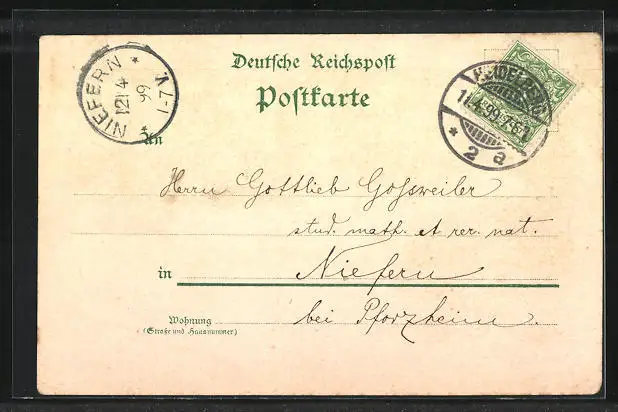 Deutsche Reichspost
Postkarte
NIEFERN
12/4
99
1-7V
HEIDELBERG
11.4.99.7-8V
* 2 a
An
Herrn Gottlieb Gossweiler
stud. math. et rer. nat.
in Niefern
Wohnung
(Straße und Hausnummer)
bei Pforzheim.